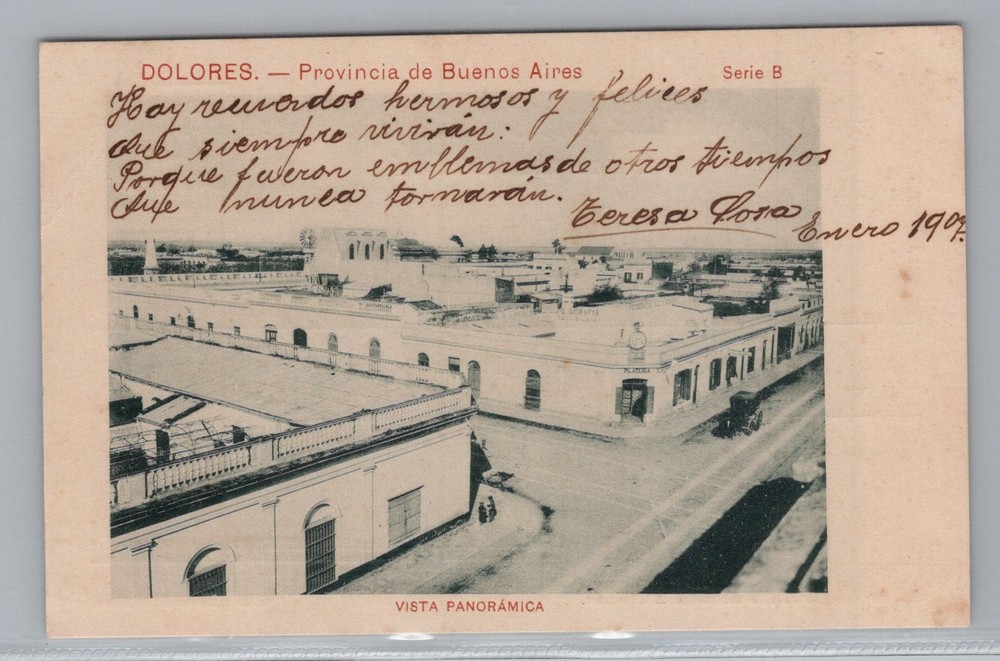 DOLORES. — Provincia de Buenos Aires Serie B
Hay recuerdos hermosos y felices
Que siempre vivirán:
Porque fueron emblemas de otros tiempos
Que nunca tornarán.
Teresa Sosa
Enero 1907.
PLATERIA
VISTA PANORÁMICA